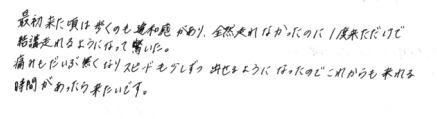 最初来た頃は歩くのも違和感があり、全然走れなかったのに1度来ただけで
結講走れるようになって驚いた。
痛みもだいぶ無くなりスピードも少しずつ出せるようになったのでこれからも来れる
時間があったら来たいです。